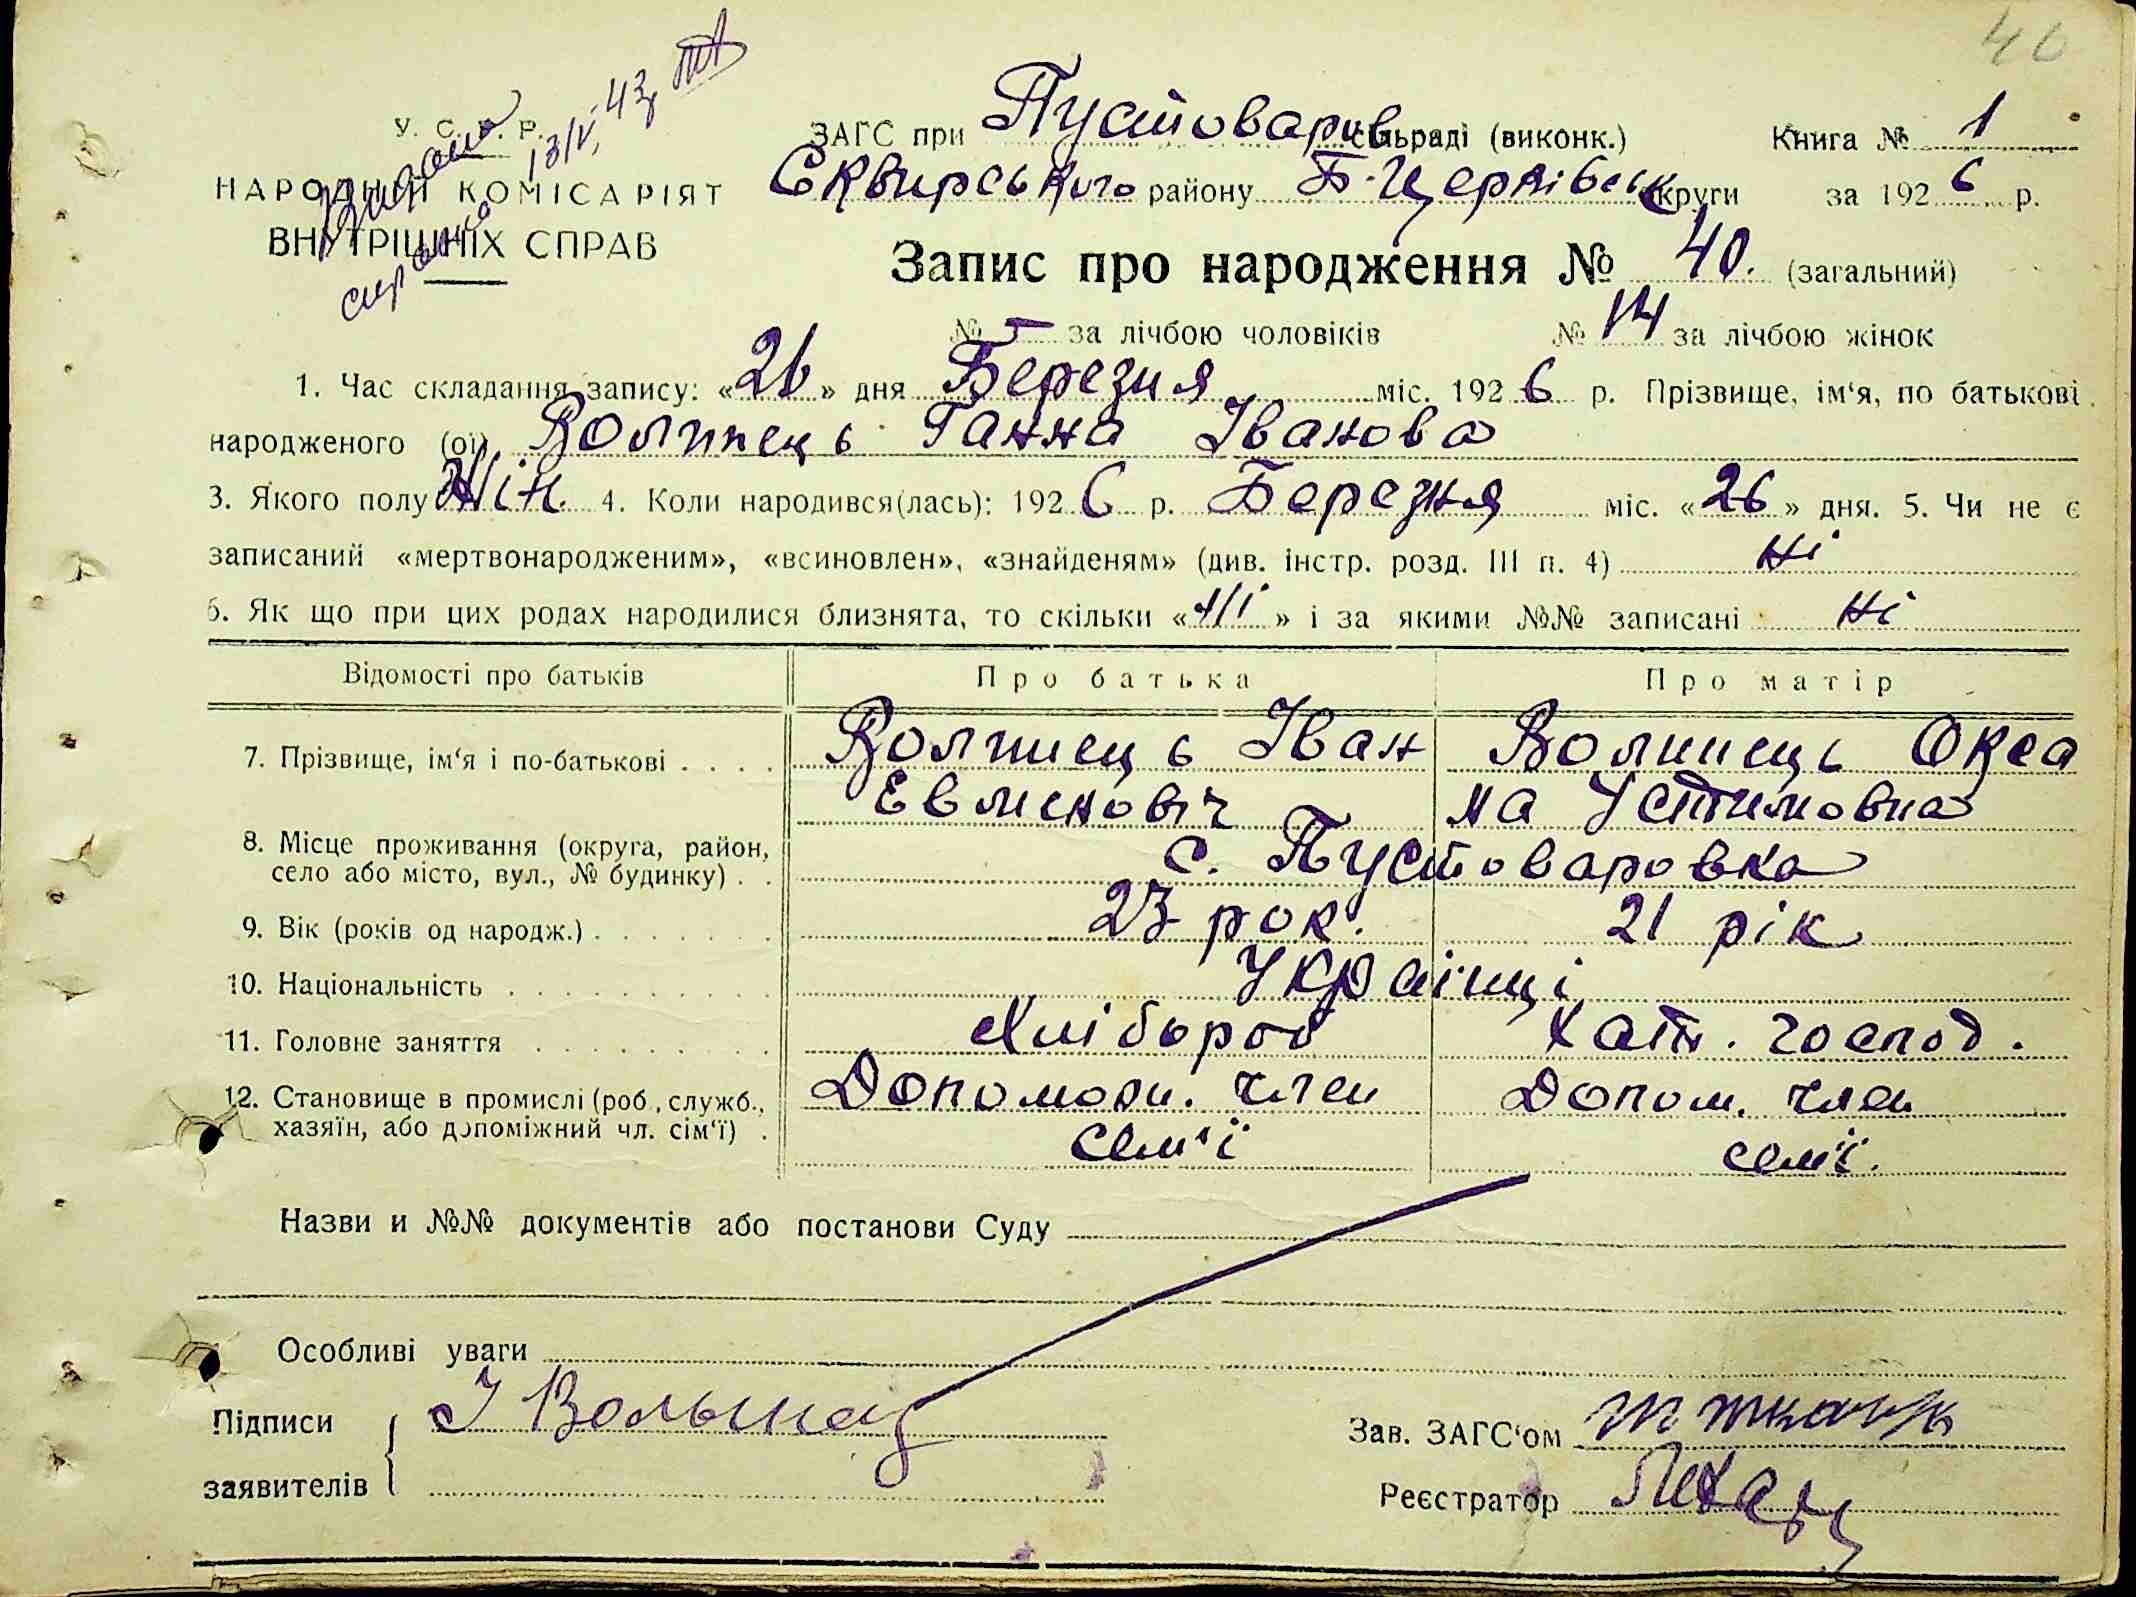 40
У. С. Р. Р.
НАРОДНІЙ КОМІСАРІЯТ
ВНУТРІШНІХ СПРАВ
Видана
справка
13/V, 43
ЗАГС при Пустоварів сільраді (виконк.) Книга № 1
Сквирського району Б-Церківськ округи за 1926 р.
Запис про народження № 40. (загальний)
№ - за лічбою чоловіків № 14 за лічбою жінок
1. Час складання запису: «26» дня Березня міс. 1926 р. Прізвище, ім‘я, по батькові
народженого (ої) Волинець Ганна Іванова
3. Якого полу Жін. 4. Коли народився(лась): 1926 р. Березня міс. «26» дня. 5. Чи не є
записаний «мертвонародженим», «всиновлен», «знайденям» (див. інстр. розд. III п. 4) Ні
6. Як що при цих родах народилися близнята, то скільки «Ні» і за якими №№ записані Ні
Відомості про батьків Про батька Про матір
7. Прізвище, ім‘я і по-батькові . . . . Волинець Іван Волинець Окса
Евменовіч на Устимовна
8. Місце проживання (округа, район,
село або місто, вул., № будинку) . . с. Пустоваровка
9. Вік (років од народж.) . . . . . . . 23 рок. 21 рік
10. Національність . . . . . . . . . . Українці
11. Головне заняття . . . . . . . . . Хлібороб Хатн. господ.
12. Становище в промислі (роб., служб.,
хазяїн, або допоміжний чл. сім‘ї) . Допоможн. член Допом. член
сем'ї сем'ї.
Назви и №№ документів або постанови Суду
Особливі уваги
Підписи
заявителів
І Волынец
Зав. ЗАГС‘ом
Реєстратор